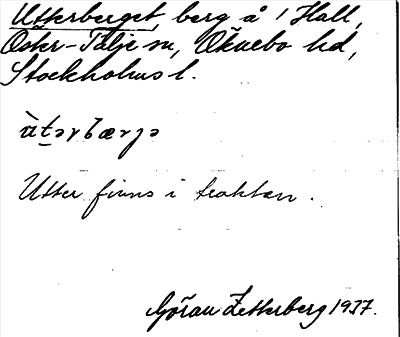 Utterberget, berg å 1 Hall,
Öster-Tälje sn, Öknebo hd,
Stockholms l.
ùtərbærjə
Utter finns i trakten.
Göran Zetterberg 1937.